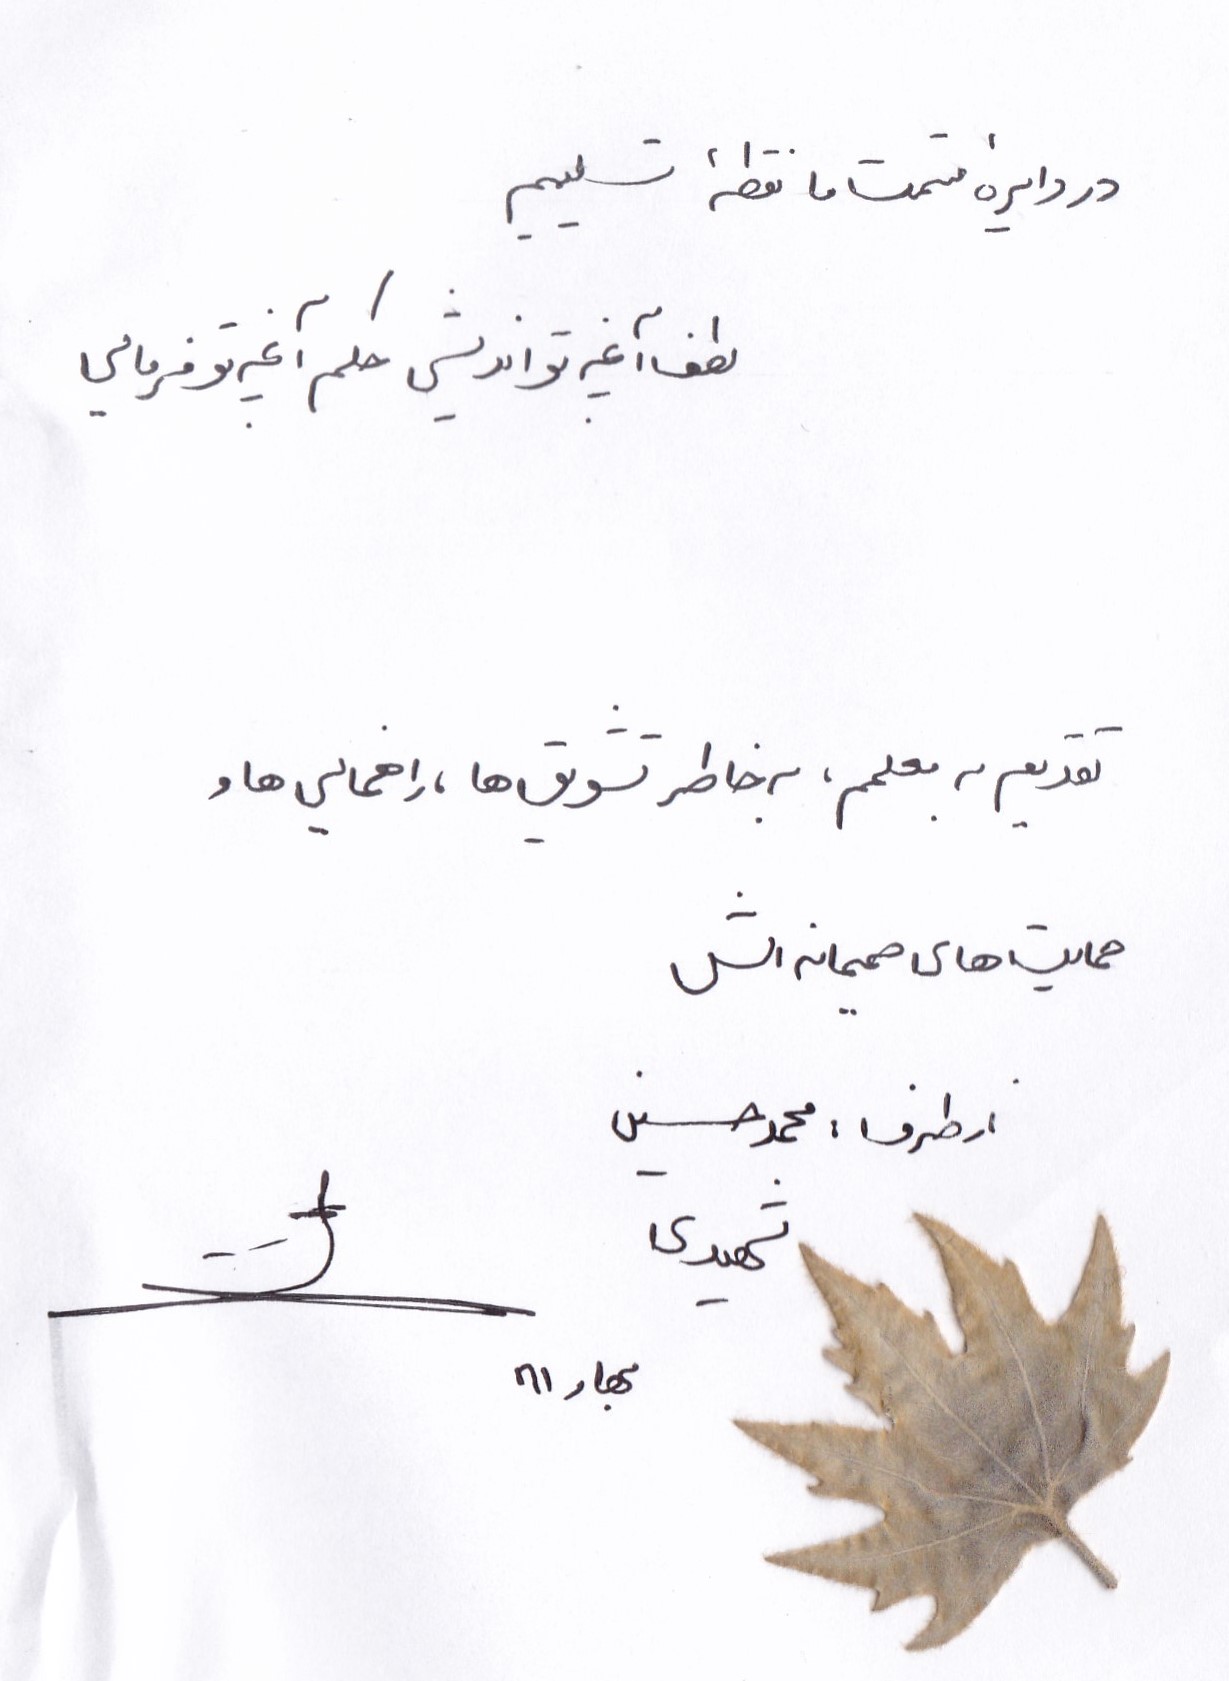 در دایرهٔ قسمت ما نقطهٔ تسلیمیم
لطف آنچه تو اندیشی حکم آنچه تو فرمائی
تقدیم به معلمم، به خاطر تشویق ها، راهنمائی ها و
حمایت های صمیمانه اش
از طرف: محمد حسین
شهیدی
بهار ۹۱